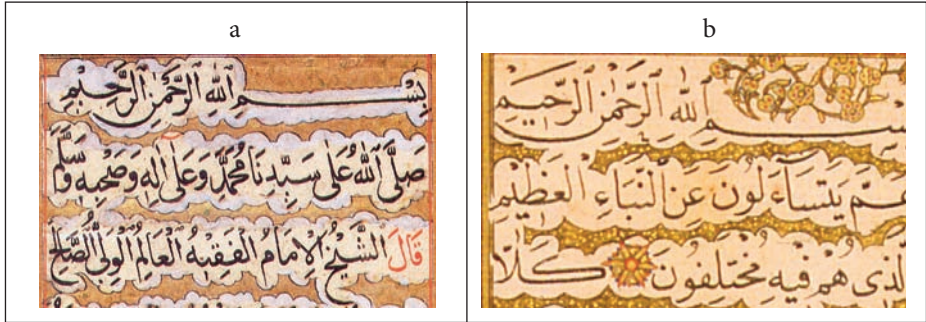 a
بِسْمِ اللهِ الرَّحْمٰنِ الرَّحِيْمِ
صَلَّى اللهُ عَلَى سَيِّدِنَا مُحَمَّدٍ وَعَلَى اٰلِهِ وَصَحْبِهِ وَسَلَّمَ
قَالَ الشَّيْخُ الْاِمَامُ الْفَقِيْهُ الْعَالِمُ الْوَلِيُّ الصَّالِحُ
b
بِسْمِ اللهِ الرَّحْمٰنِ الرَّحِيْمِ
عَمَّ يَتَسَآءَلُونَ عَنِ النَّبَاءِ الْعَظِيْمِ
الَّذِى هُمْ فِيهِ مُخْتَلِفُونَ كَلَّا